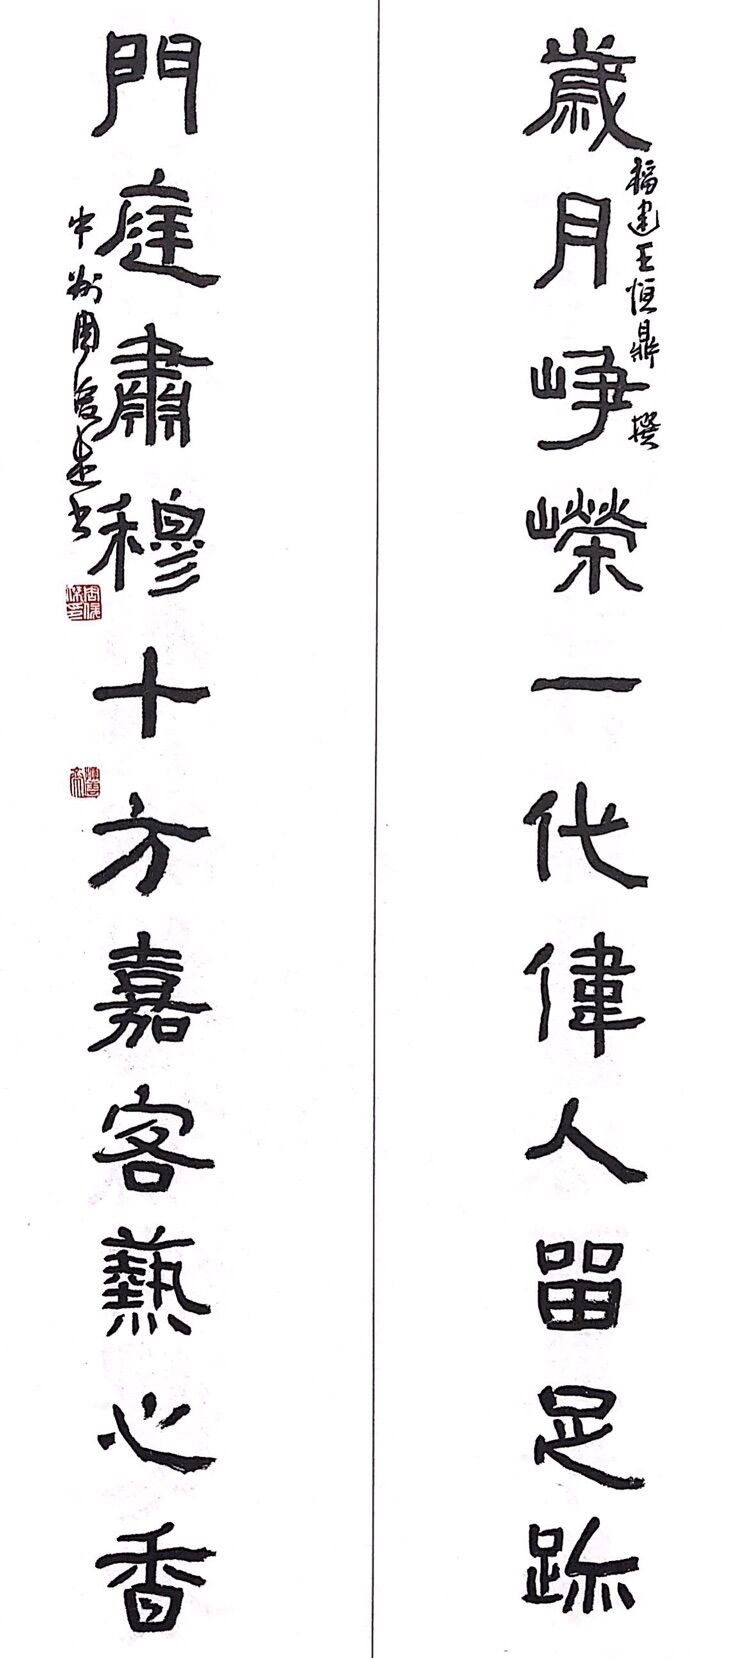 歲月崢嶸一代偉人留足跡
福建王恒鼎撰
門庭肅穆十方嘉客爇心香
中州周俊杰書